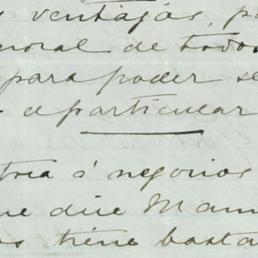 ventajas, p
moral de todos
para poder se
particular
tría á negocios
ne dice Man
os tiene basta